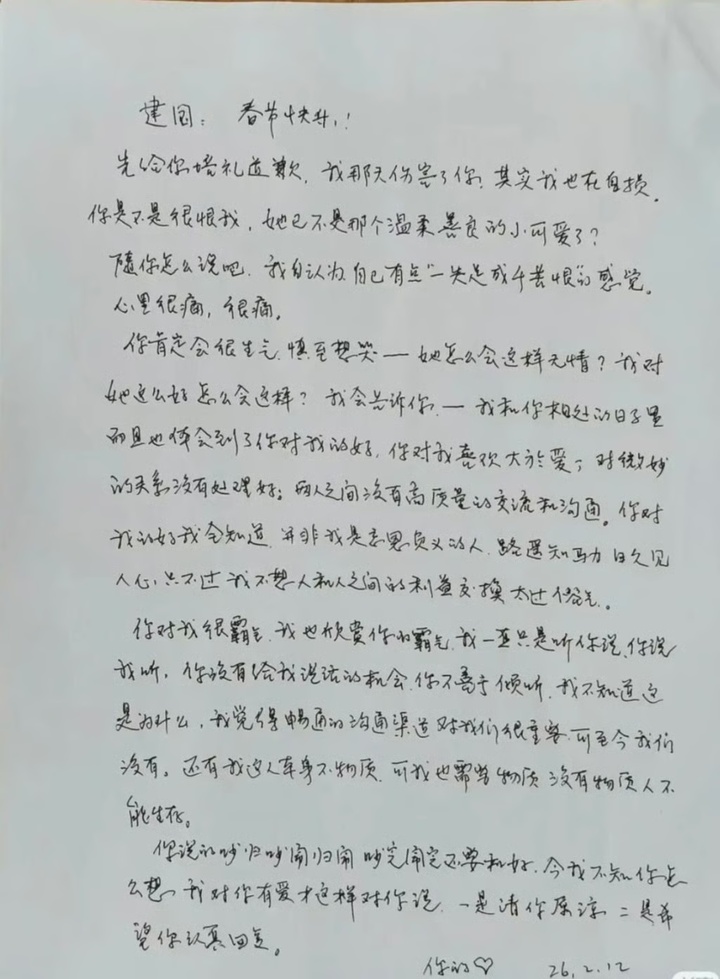 建国：春节快乐！
先给你培礼道歉，我那天伤害了你，其实我也在自损。
你是不是很恨我，她已不是那个温柔善良的小可爱了？
随你怎么说吧，我自认为自己有点“一失足成千苦恨”的感觉。
心里很痛，很痛。
你肯定会很生气，慎至想哭——她怎么会这样无情？我对
她这么好怎么会这样？我会告诉你，一我和你相处的日子里
而且也体会到了你对我的好，你对我喜欢大於爱，对微妙
的关系没有处理好；两人之间没有高质量的交流和沟通。你对
我的好我全知道，并非我是忘恩负义的人，路遥知马力日久见
人心，只不过我不想人和人之间的利益交换太过俗气。
你对我很霸气，我也欣赏你的霸气，我一直只是听你说，你说
我听，你没有给我说话的机会，你不善于倾听，我不知道这
是为什么，我觉得畅通的沟通渠道对我们很重要，可至今我们
没有。还有我这人本身不物质，可我也需要物质，没有物质人不
能生存。
你说的吵归吵闹归闹吵完闹完还要和好，今我不知你怎
么想，我对你有爱才这样对你说，一是请你原谅，二是希
望你认真回复。
你的♡ 26.2.12